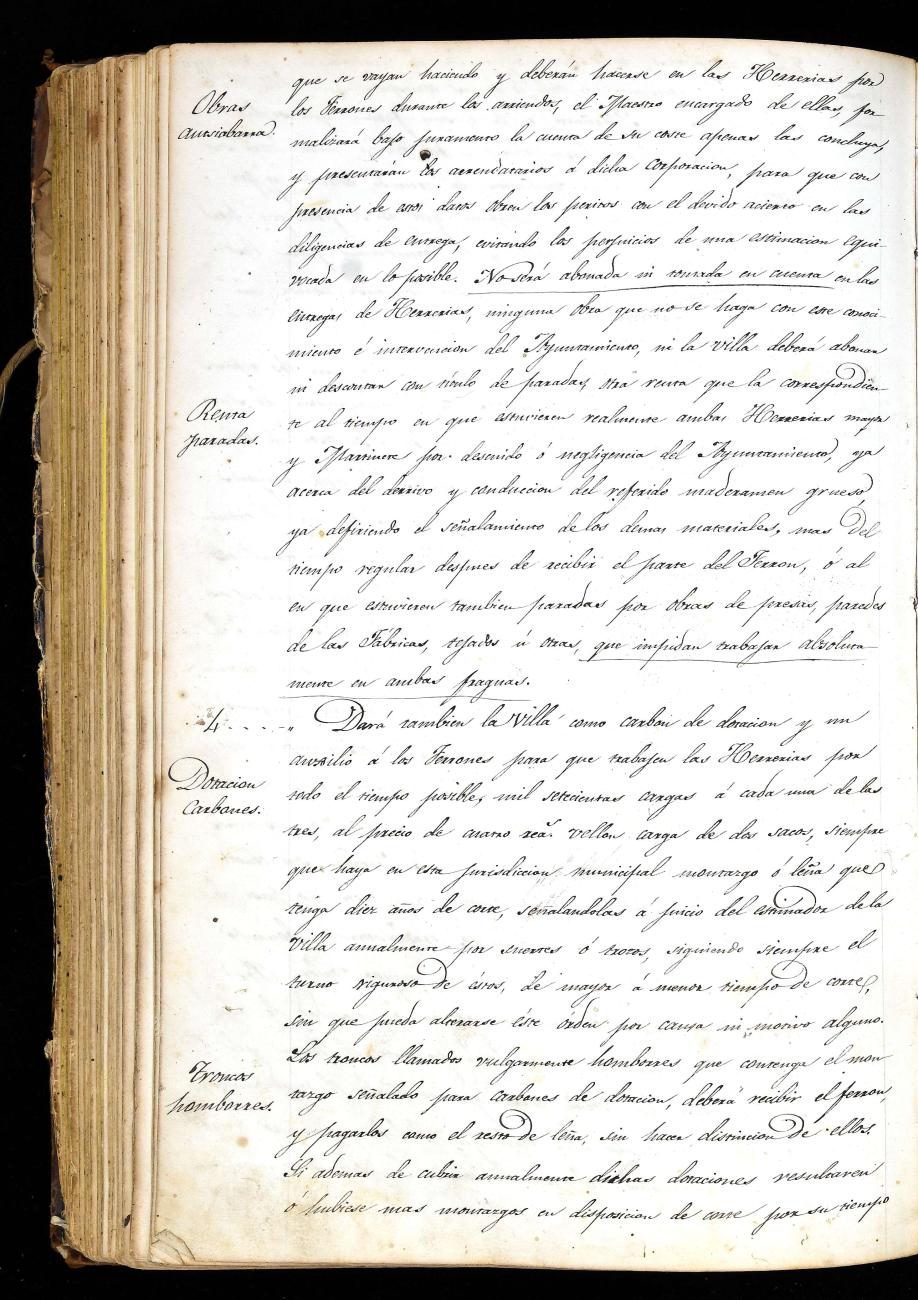 que se vayan haciendo y deberán hacerse en las Herrerias por
Obras
Antsiabarra.
los Ferrones durante los arriendos, el Maestro encargado de ellas, for-
malizará bajo juramento la cuenta de su coste apenas las concluya,
y presentaran los arrendatarios á dicha Corporacion, para que con
presencia de estos datos obren los peritos con el devido acierto en las
diligencias de entrega, evitando los perjuicios de una estimacion equi-
vocada en lo posible. No será abonada ni tomada en cuenta en las
entregas de Herrerias, ninguna obra que no se haga con este conoci-
miento é intervencion del Ayuntamiento, ni la Villa deberá abonar
ni descontar con título de paradas, otra renta que la correspondien-
Renta
paradas.
te al tiempo en que estuvieren realmente ambas Herrerias mayor
y Martinete por descuido ó negligencia del Ayuntamiento, ya
acerca del derrivo y conduccion del referido maderamen grueso,
ya defiriendo el señalamiento de los demas materiales, mas del
tiempo regular despues de recibir el parte del Ferron, ó al
en que estuvieren tambien paradas por obras de presas, paredes
de las Fábricas, tejados ú otras, que impidan trabajar absoluta-
mente en ambas fraguas.
4 . . . . „ Dará tambien la Villa como carbon de dotacion y un
Dotacion
Carbones.
auxilio á los Ferrones para que trabajen las Herrerias por
todo el tiempo posible, mil setecientas cargas á cada una de las
tres, al precio de cuatro rea.s vellon carga de dos sacos, siempre
que haya en esta jurisdiccion municipal montazgo ó leña que
tenga diez años de corte, señalandolas á juicio del estimador de la
Villa annalmente por suertes ó trozos, siguiendo siempre el
turno riguroso de éstos, de mayor á menor tiempo de corte,
sin que pueda alterarse éste órden por causa ni motivo alguno.
Troncos
homborres.
Los troncos llamados vulgarmente homborres que contenga el mon-
tazgo señalado para carbones de dotacion, deberá recibir el ferron,
y pagarlos como el resto de leña, sin hacer distincion de ellos.
Si ademas de cubrir annalmente dichas dotaciones resultaren
ó hubiese mas montazgos en disposicion de corte por su tiempo